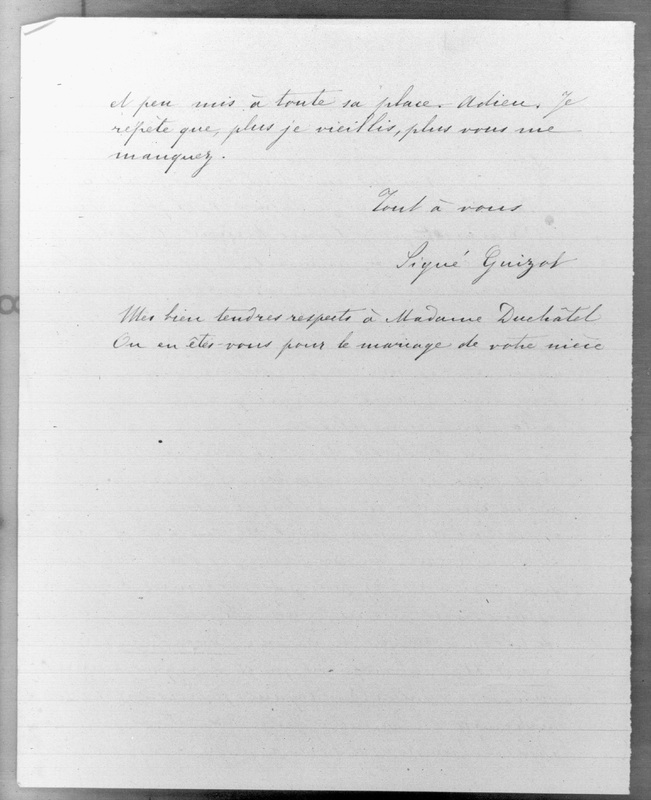 et peu mis à toute sa place. Adieu. Je
répète que, plus je vieillis, plus vous me
manquez.
Tout à vous
Signé Guizot
Mes bien tendres respects à Madame Duchâtel
Ou en êtes-vous pour le mariage de votre nièce